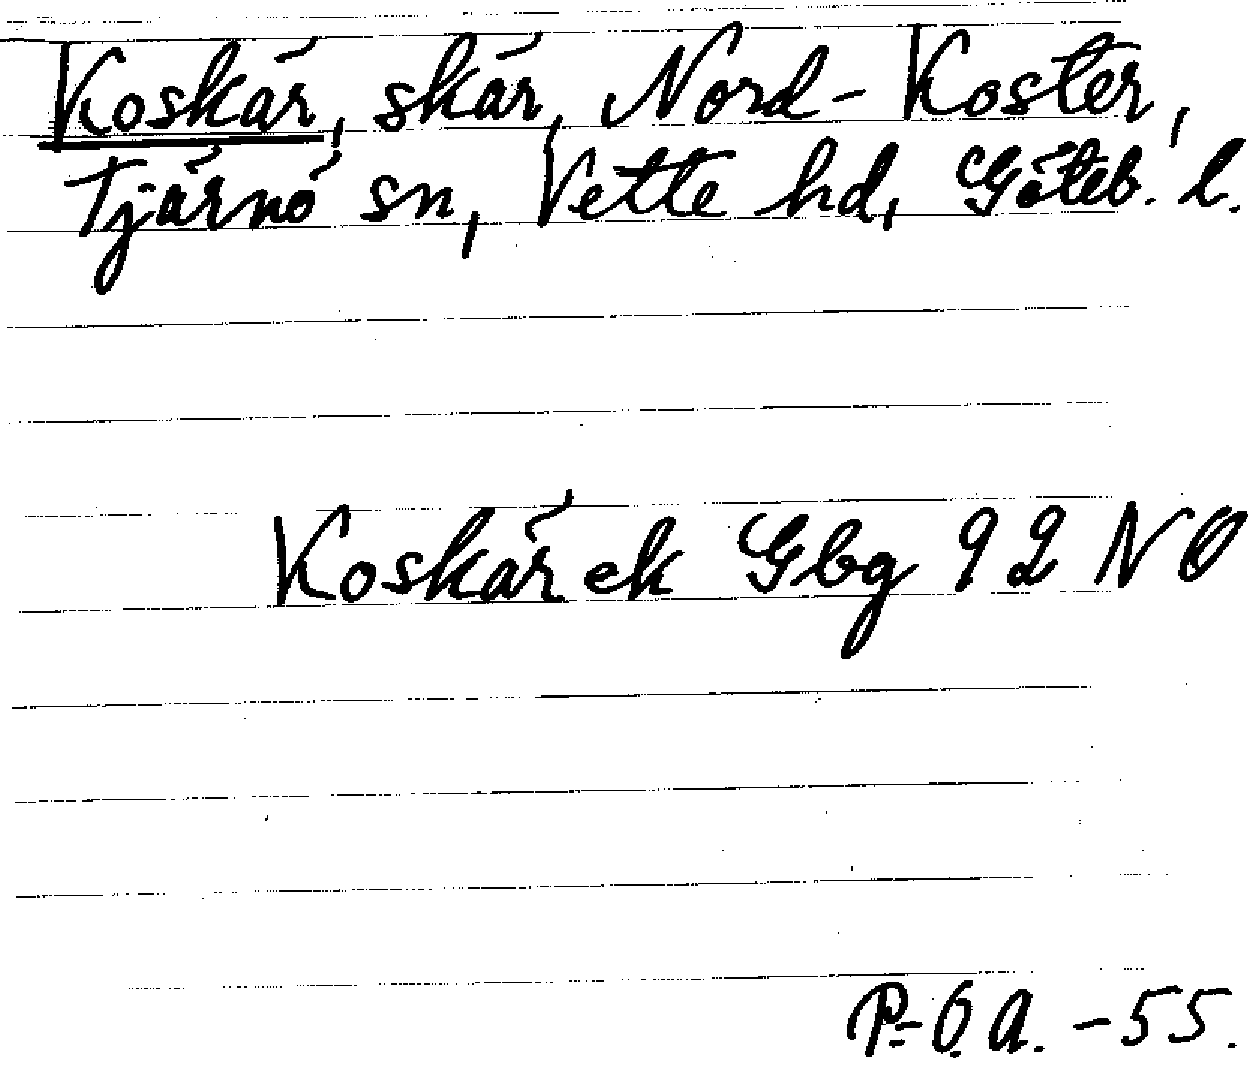 Koskär, skär, Nord-Koster,
Tjärnö sn, Vette hd, Göteb. l.
Koskär ek Gbg 92 NO
P.-O. A. -55.